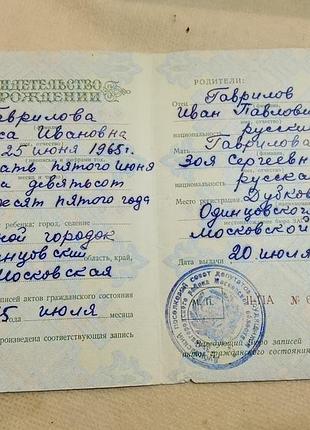 ИДЕТЕЛЬСТВО
РОЖДЕНИИ
аврилова
са Ивановна
25 июня 1965г.
(прописью и цифрами год,
ать пятого июня
ча девятьсот
десят пятого года
ребенка: город, селение
ной городок
нцовский
область, край,
Московская
записей актов гражданского состояния
5 года июля месяца
произведена соответствующая запись
РОДИТЕЛИ:
Отец Гаврилов
Иван Павлови
национальность русский
Мать Гаврилова
Зоя Сергеевн
национальность русская
Место регистрации Дубков
Одинцовской
Московской
Дата выдачи 20 июля
М. П. II-ЛА №
Заведующий бюро записей
актов гражданского состояния